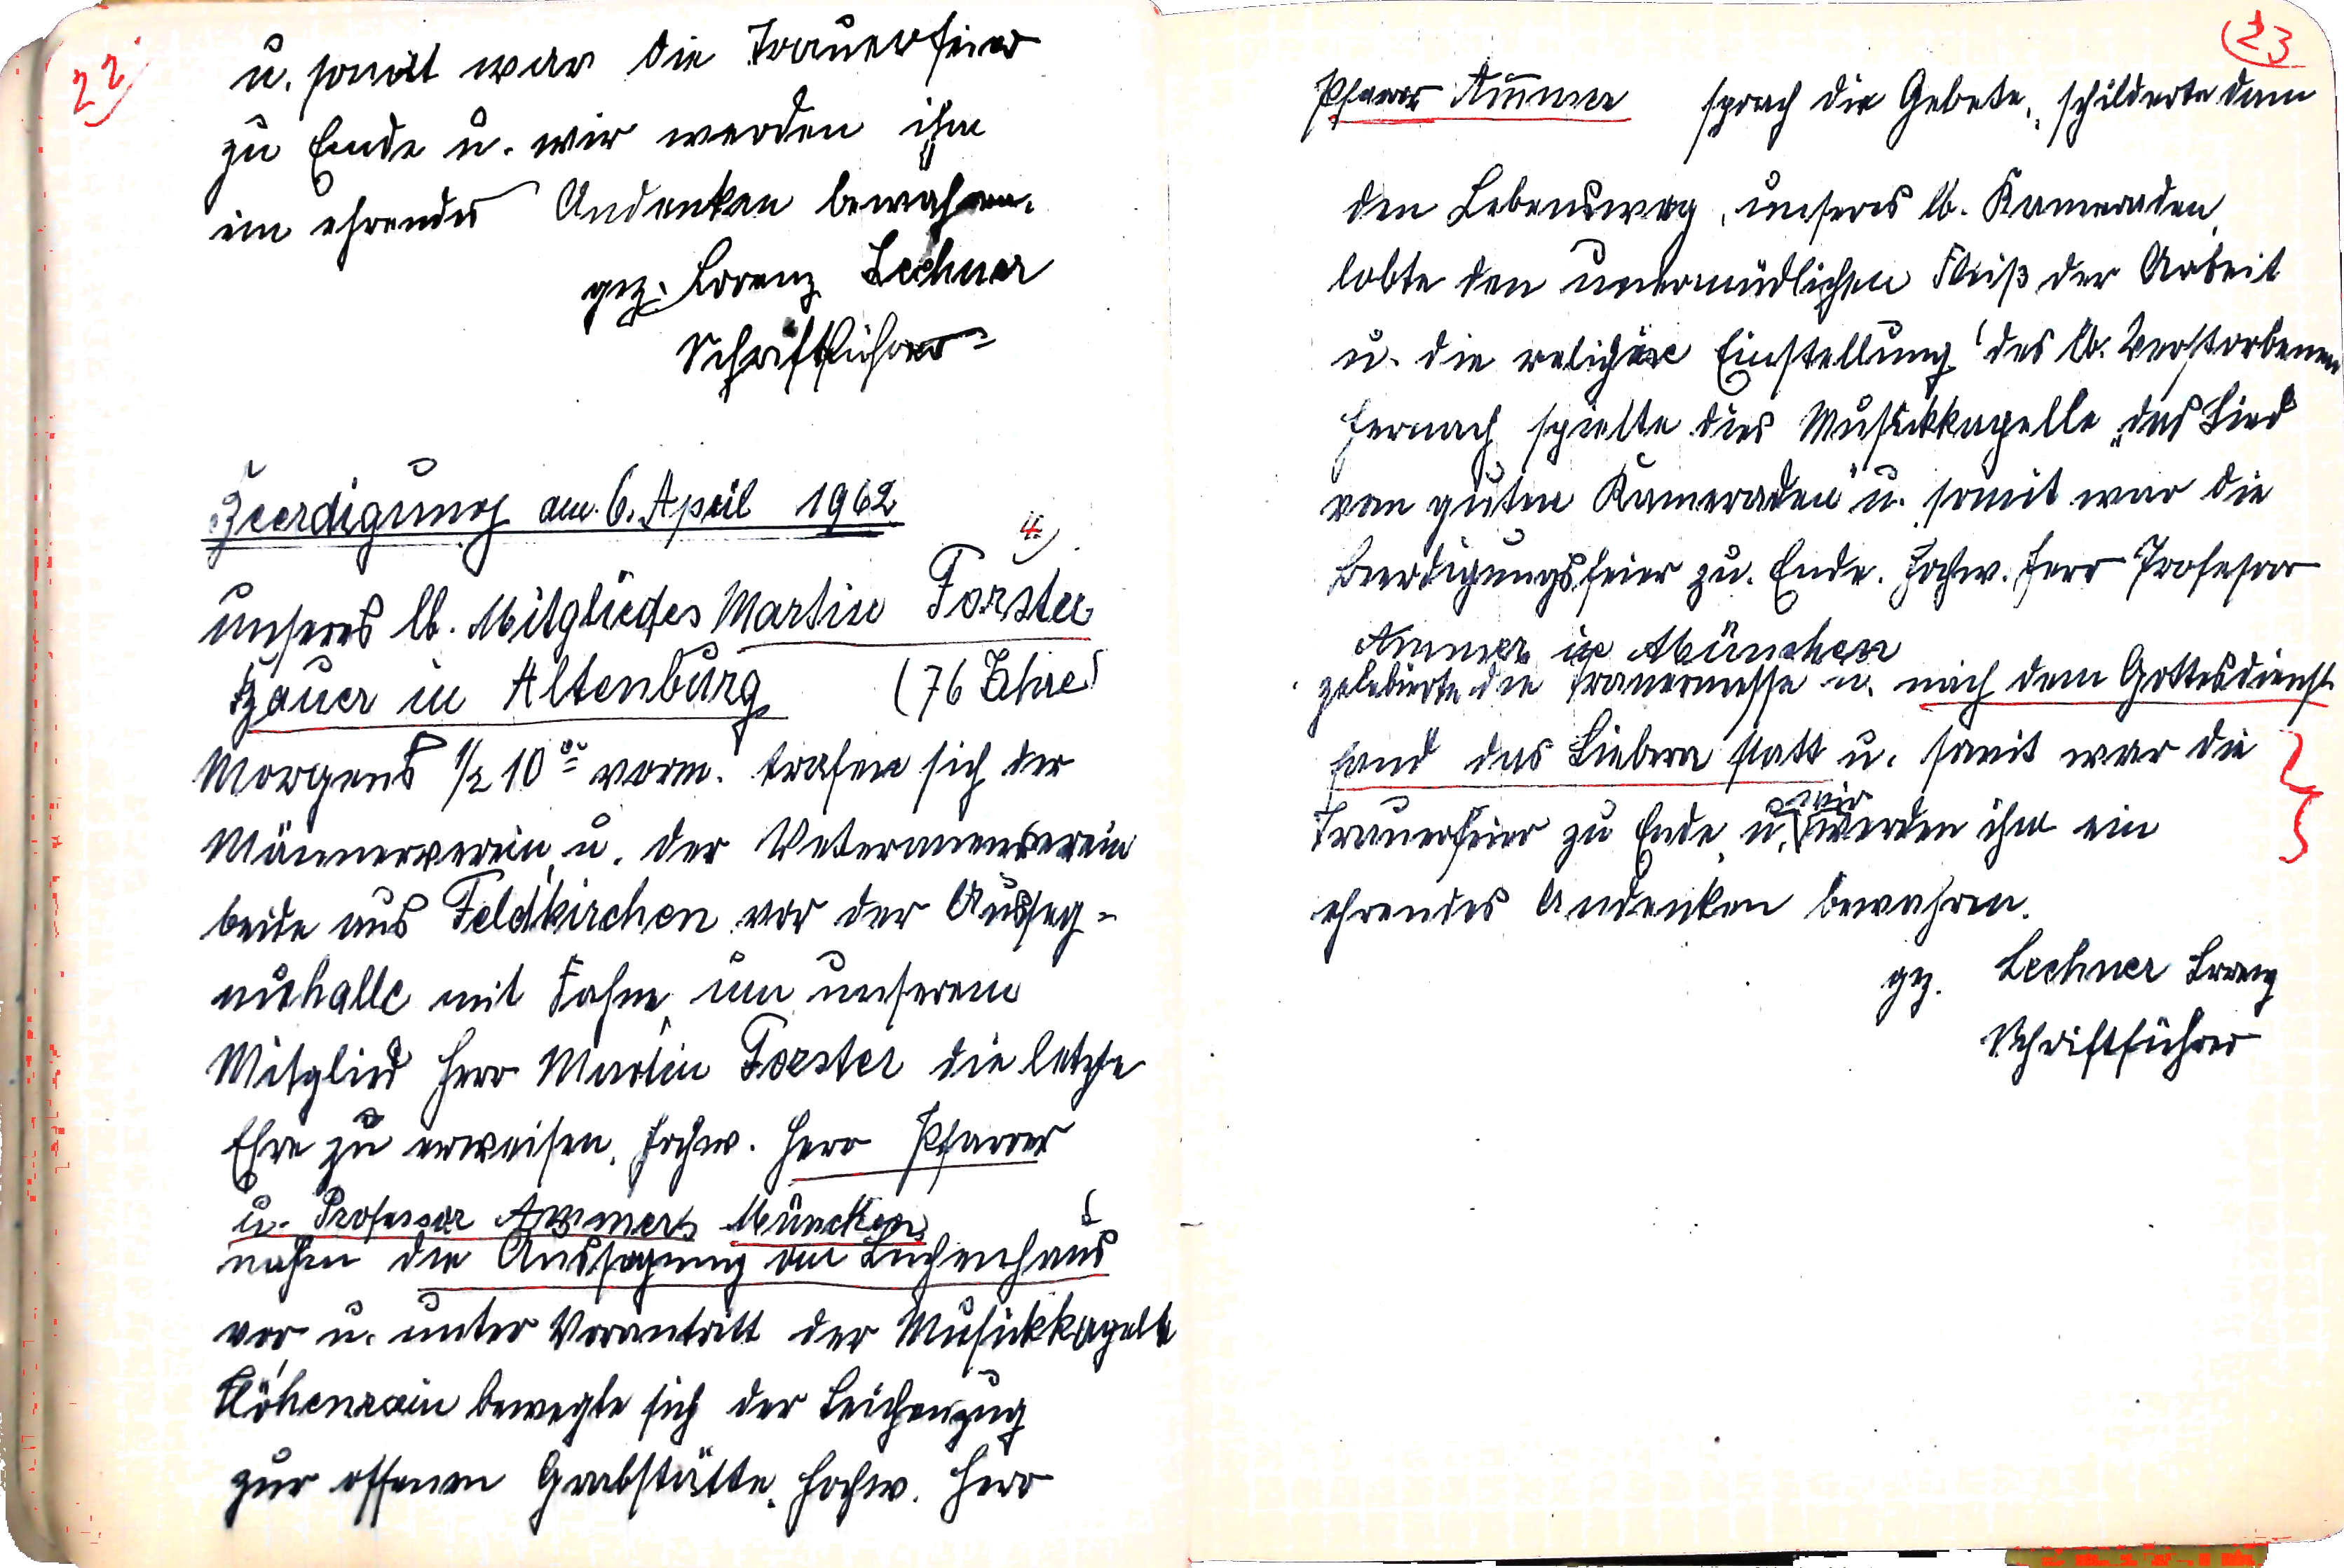 22
u. somit war die Trauerfeier
zu Ende u. wir werden ihm
ein ehrendes Andenken bewahren.
gez: Lorenz Lechner
Schriftführer
Beerdigung am 6. April 1962
4
unseres lb. Mitgliedes Martin Forster
Bauer in Altenburg (76 Jahre)
Morgens 1/2 10 vorm. trafen sich der
Männerverein u. der Veteranenverein
beide aus Feldkirchen vor der Ausseg-
nuhalle mit Fahne um unserem
Mitglied Herr Martin Forster die letzte
Ehre zu erweisen. Hochw. Herr Pfarrer
u. Professor Ammer München
nahm die Aussegnung am Leichenhaus
vor u. unter Vorantritt der Musickkapelle
Höhenrain bewegte sich der Leichenzug
zur offenen Grabstätte. Hochw. Herr
23
Pfarrer Ammer sprach die Gebete, schilderte dann
den Lebensweg unseres lb. Kameraden
lobte den unermüdlichen Fleiß der Arbeit
u. die religiöse Einstellung des lb. Verstorbenen
hernach spielte dies Musickkapelle "das Lied
von guten Kameraden" u. somit war die
Beerdigungsfeier zu Ende. Hochw. Herr Professor
Ammer in München
zelebierte die Trauermesse u. nach dem Gottesdienst
fand das Liebera statt u. somit war die
Trauerfeier zu Ende u. wir werden ihm ein
ehrendes Andenken bewahren.
gez. Lechner Lorenz
Schriftführer